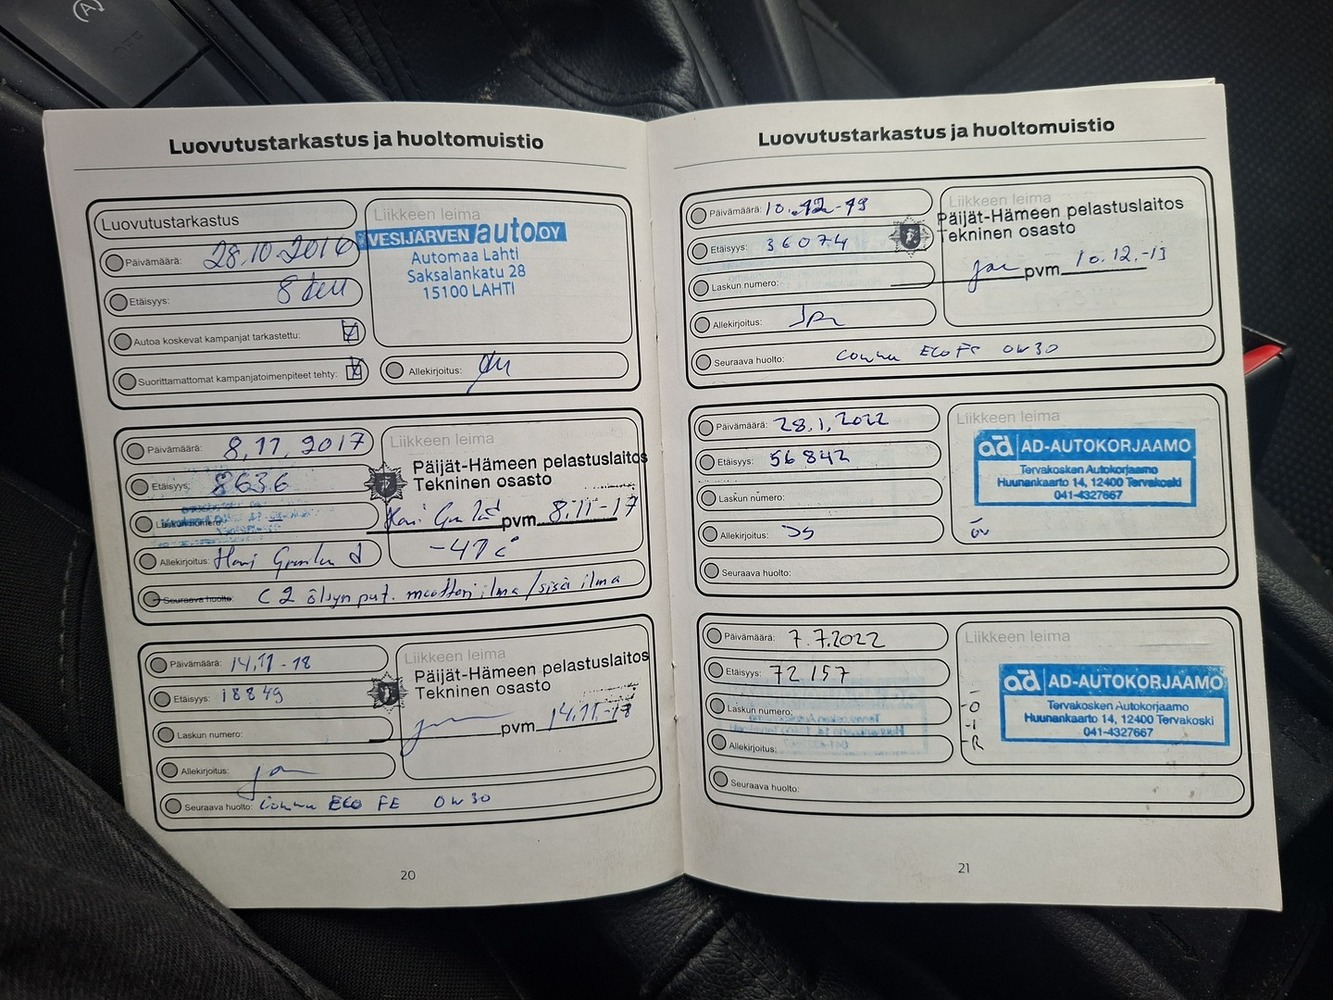 Luovutustarkastus ja huoltomuistio
Luovutustarkastus
Päivämäärä: 28.10.2016
Etäisyys: 8
Autoa koskevat kampanjat tarkastettu:
Suorittamattomat kampanjatoimenpiteet tehty:
Liikkeen leima
VESIJÄRVEN auto OY
Automaa Lahti
Saksalankatu 28
15100 LAHTI
Allekirjoitus:
Päivämäärä: 8.11.2017
Etäisyys: 8636
Laskun numero:
Allekirjoitus: Harj
Seuraava huolto: C 2 öljyn put. moottori ilma / sisä ilma
Liikkeen leima
Päijät-Hämeen pelastuslaitos
Tekninen osasto
pvm. 8.11-17
-47 c°
Päivämäärä: 14.11-18
Etäisyys: 18849
Laskun numero:
Allekirjoitus:
Seuraava huolto: Comma ECO FE 0W30
Liikkeen leima
Päijät-Hämeen pelastuslaitos
Tekninen osasto
pvm. 14.11.-18
20
Luovutustarkastus ja huoltomuistio
Päivämäärä: 10.12-19
Etäisyys: 36074
Laskun numero:
Allekirjoitus:
Seuraava huolto: Comma ECO FE 0W30
Liikkeen leima
Päijät-Hämeen pelastuslaitos
Tekninen osasto
pvm. 10.12.-19
Päivämäärä: 28.1.2022
Etäisyys: 56842
Laskun numero:
Allekirjoitus: JS
Seuraava huolto:
Liikkeen leima
ad AD-AUTOKORJAAMO
Tervakosken Autokorjaamo
Huunankaarto 14, 12400 Tervakoski
041-4327667
öv
Päivämäärä: 7.7.2022
Etäisyys: 72157
Laskun numero:
Allekirjoitus:
Seuraava huolto:
Liikkeen leima
-O
-I
-R
ad AD-AUTOKORJAAMO
Tervakosken Autokorjaamo
Huunankaarto 14, 12400 Tervakoski
041-4327667
21